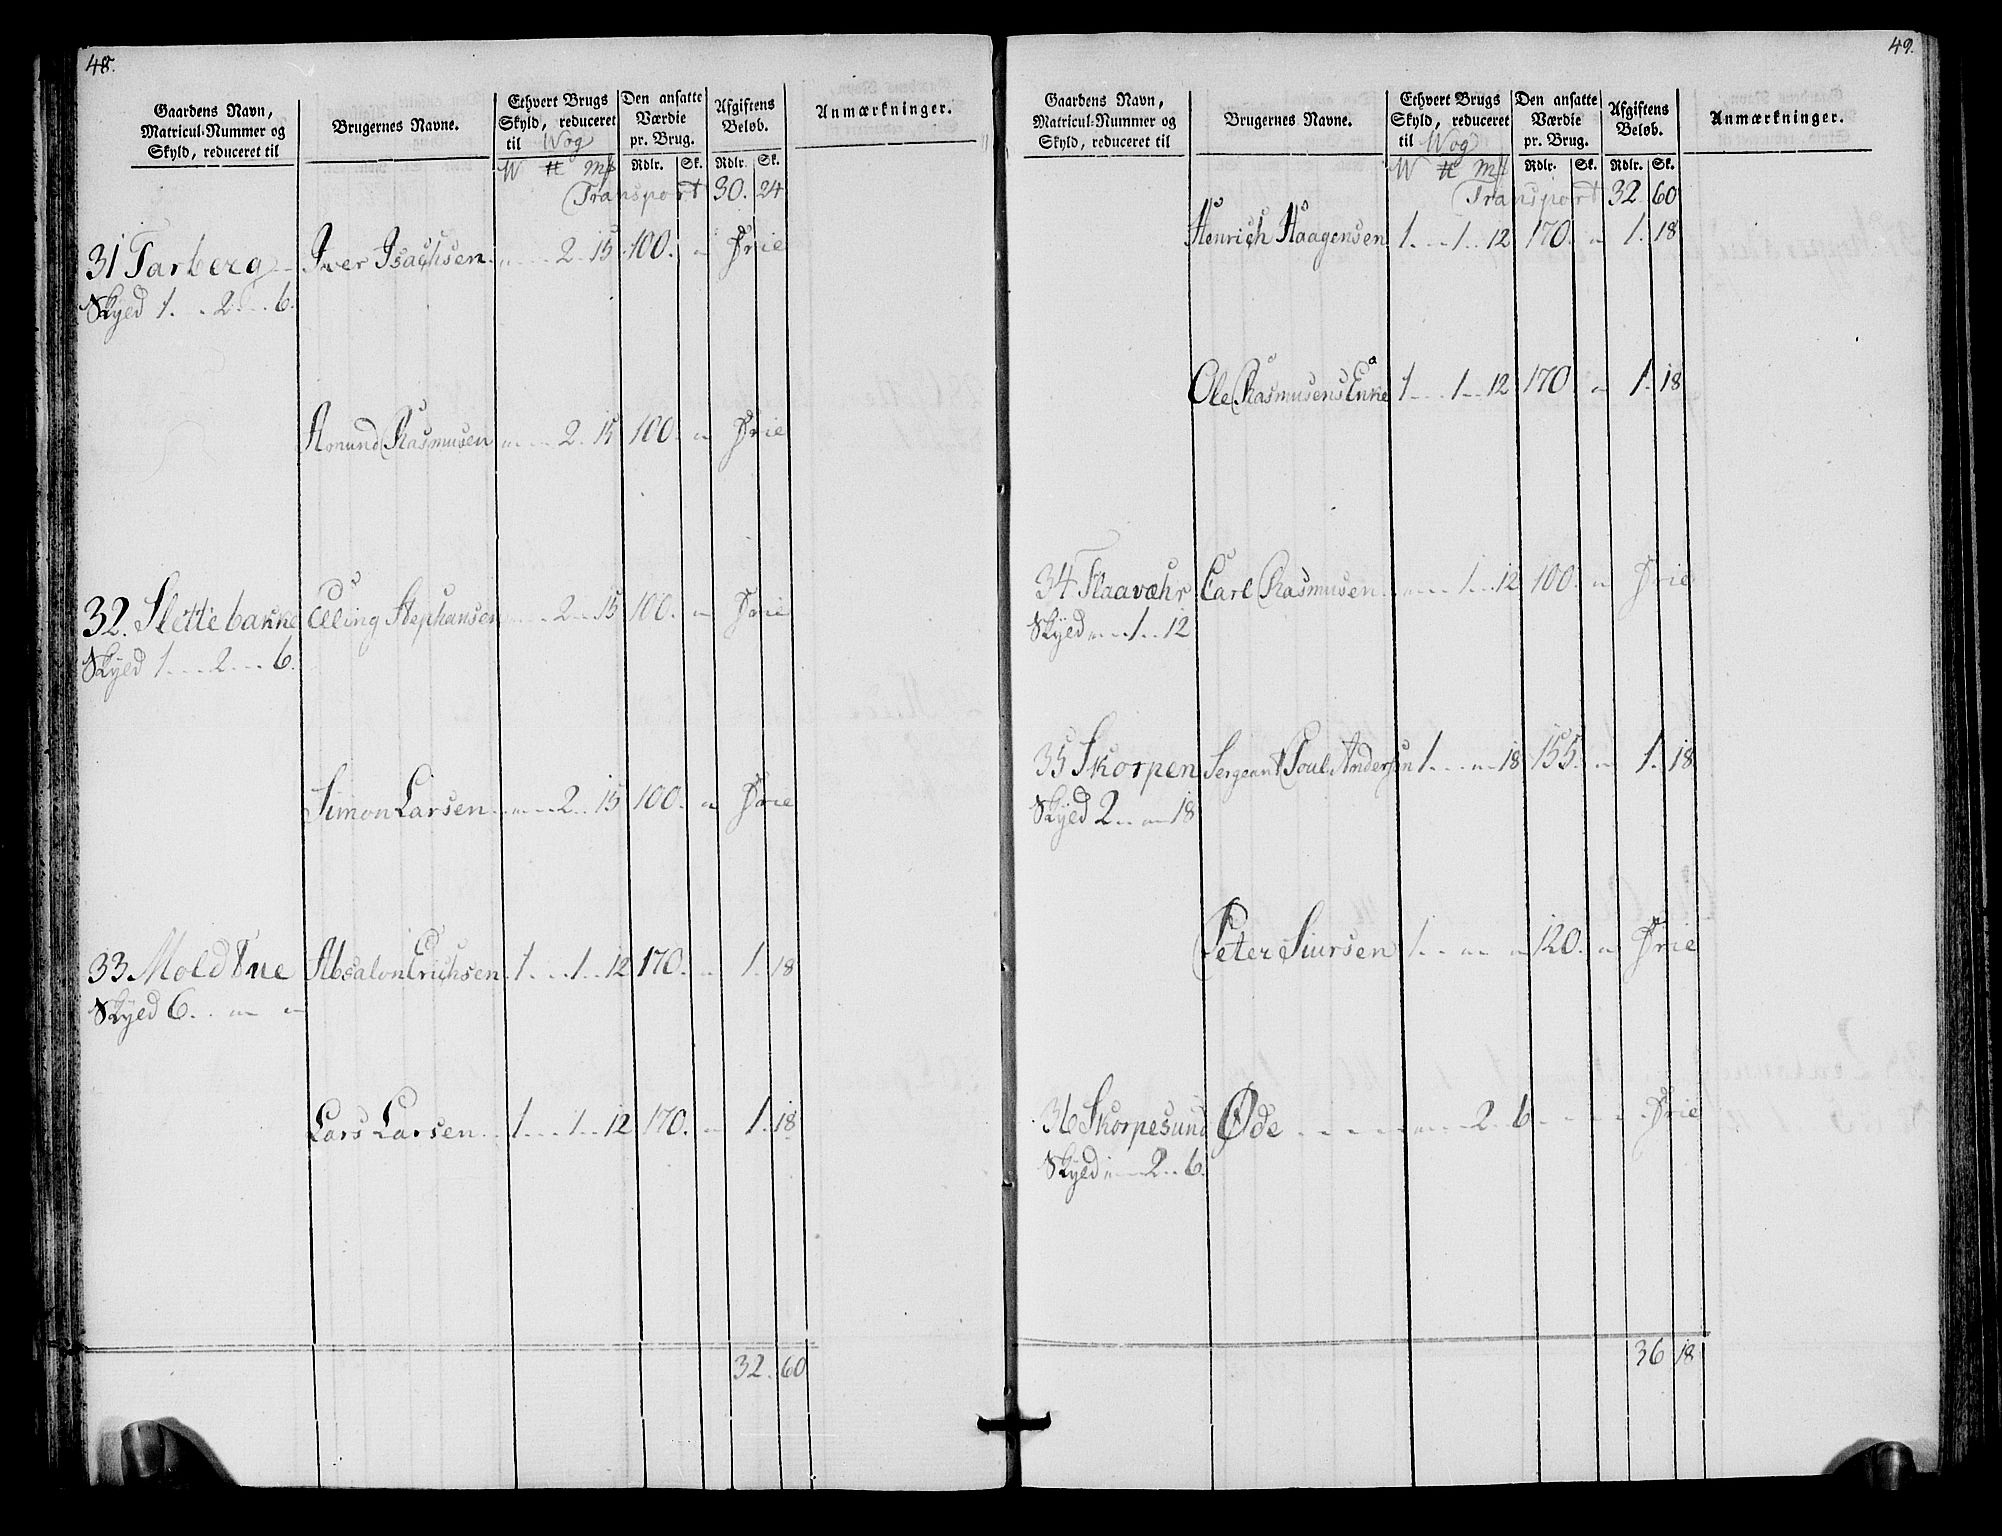 48.
Gaardens Navn, Matricul-Nummer og Skyld, reduceret til
Brugernes Navne.
Ethvert Brugs Skyld, reduceret til Wog
Den ansatte Værdie pr. Brug.
Afgiftens Beløb.
Anmærkninger.
W ℔ Mk Rdlr. Sk. Rdlr. Sk.
Transport 30. 24
31 Tarberg Iver Isachsen 2 15 100. " Frie
Skyld 1. 2 6.
Amund Rasmusen 2. 15 100. " Frie
32. Slettebakke Elling Stephansen 2 15 100. " Frie
Skyld 1 2 6.
Simon Larsen 2 15 100. " Frie
33 Moldtue Absalon Erichsen 1 1 12 170. " 1. 18
Skyld 6. " "
Lars Larsen 1 1 12 170. " 1. 18
32. 60
49.
Gaardens Navn, Matricul-Nummer og Skyld, reduceret til
Brugernes Navne.
Ethvert Brugs Skyld, reduceret til Wog
Den ansatte Værdie pr. Brug.
Afgiftens Beløb.
Anmærkninger.
W ℔ Mk Rdlr. Sk. Rdlr. Sk.
Transport 32 60
Henrich Haagensen 1 1 12 170. " 1. 18
Ole Rasmusens Enke 1 1 12 170 " 1. 18
34 Flaavæhr Carl Rasmusen 1 12 100. " Frie
Skyld " 1 12
35 Skorpen Sergeant Poul Andersen 1 " 18 155. " 1. 18
Skyld 2 " 18
Peter Siursen 1 " " 120. " Frie
36 Skorpesund Øde 2 6 Frie
Skyld " 2 6.
36 18